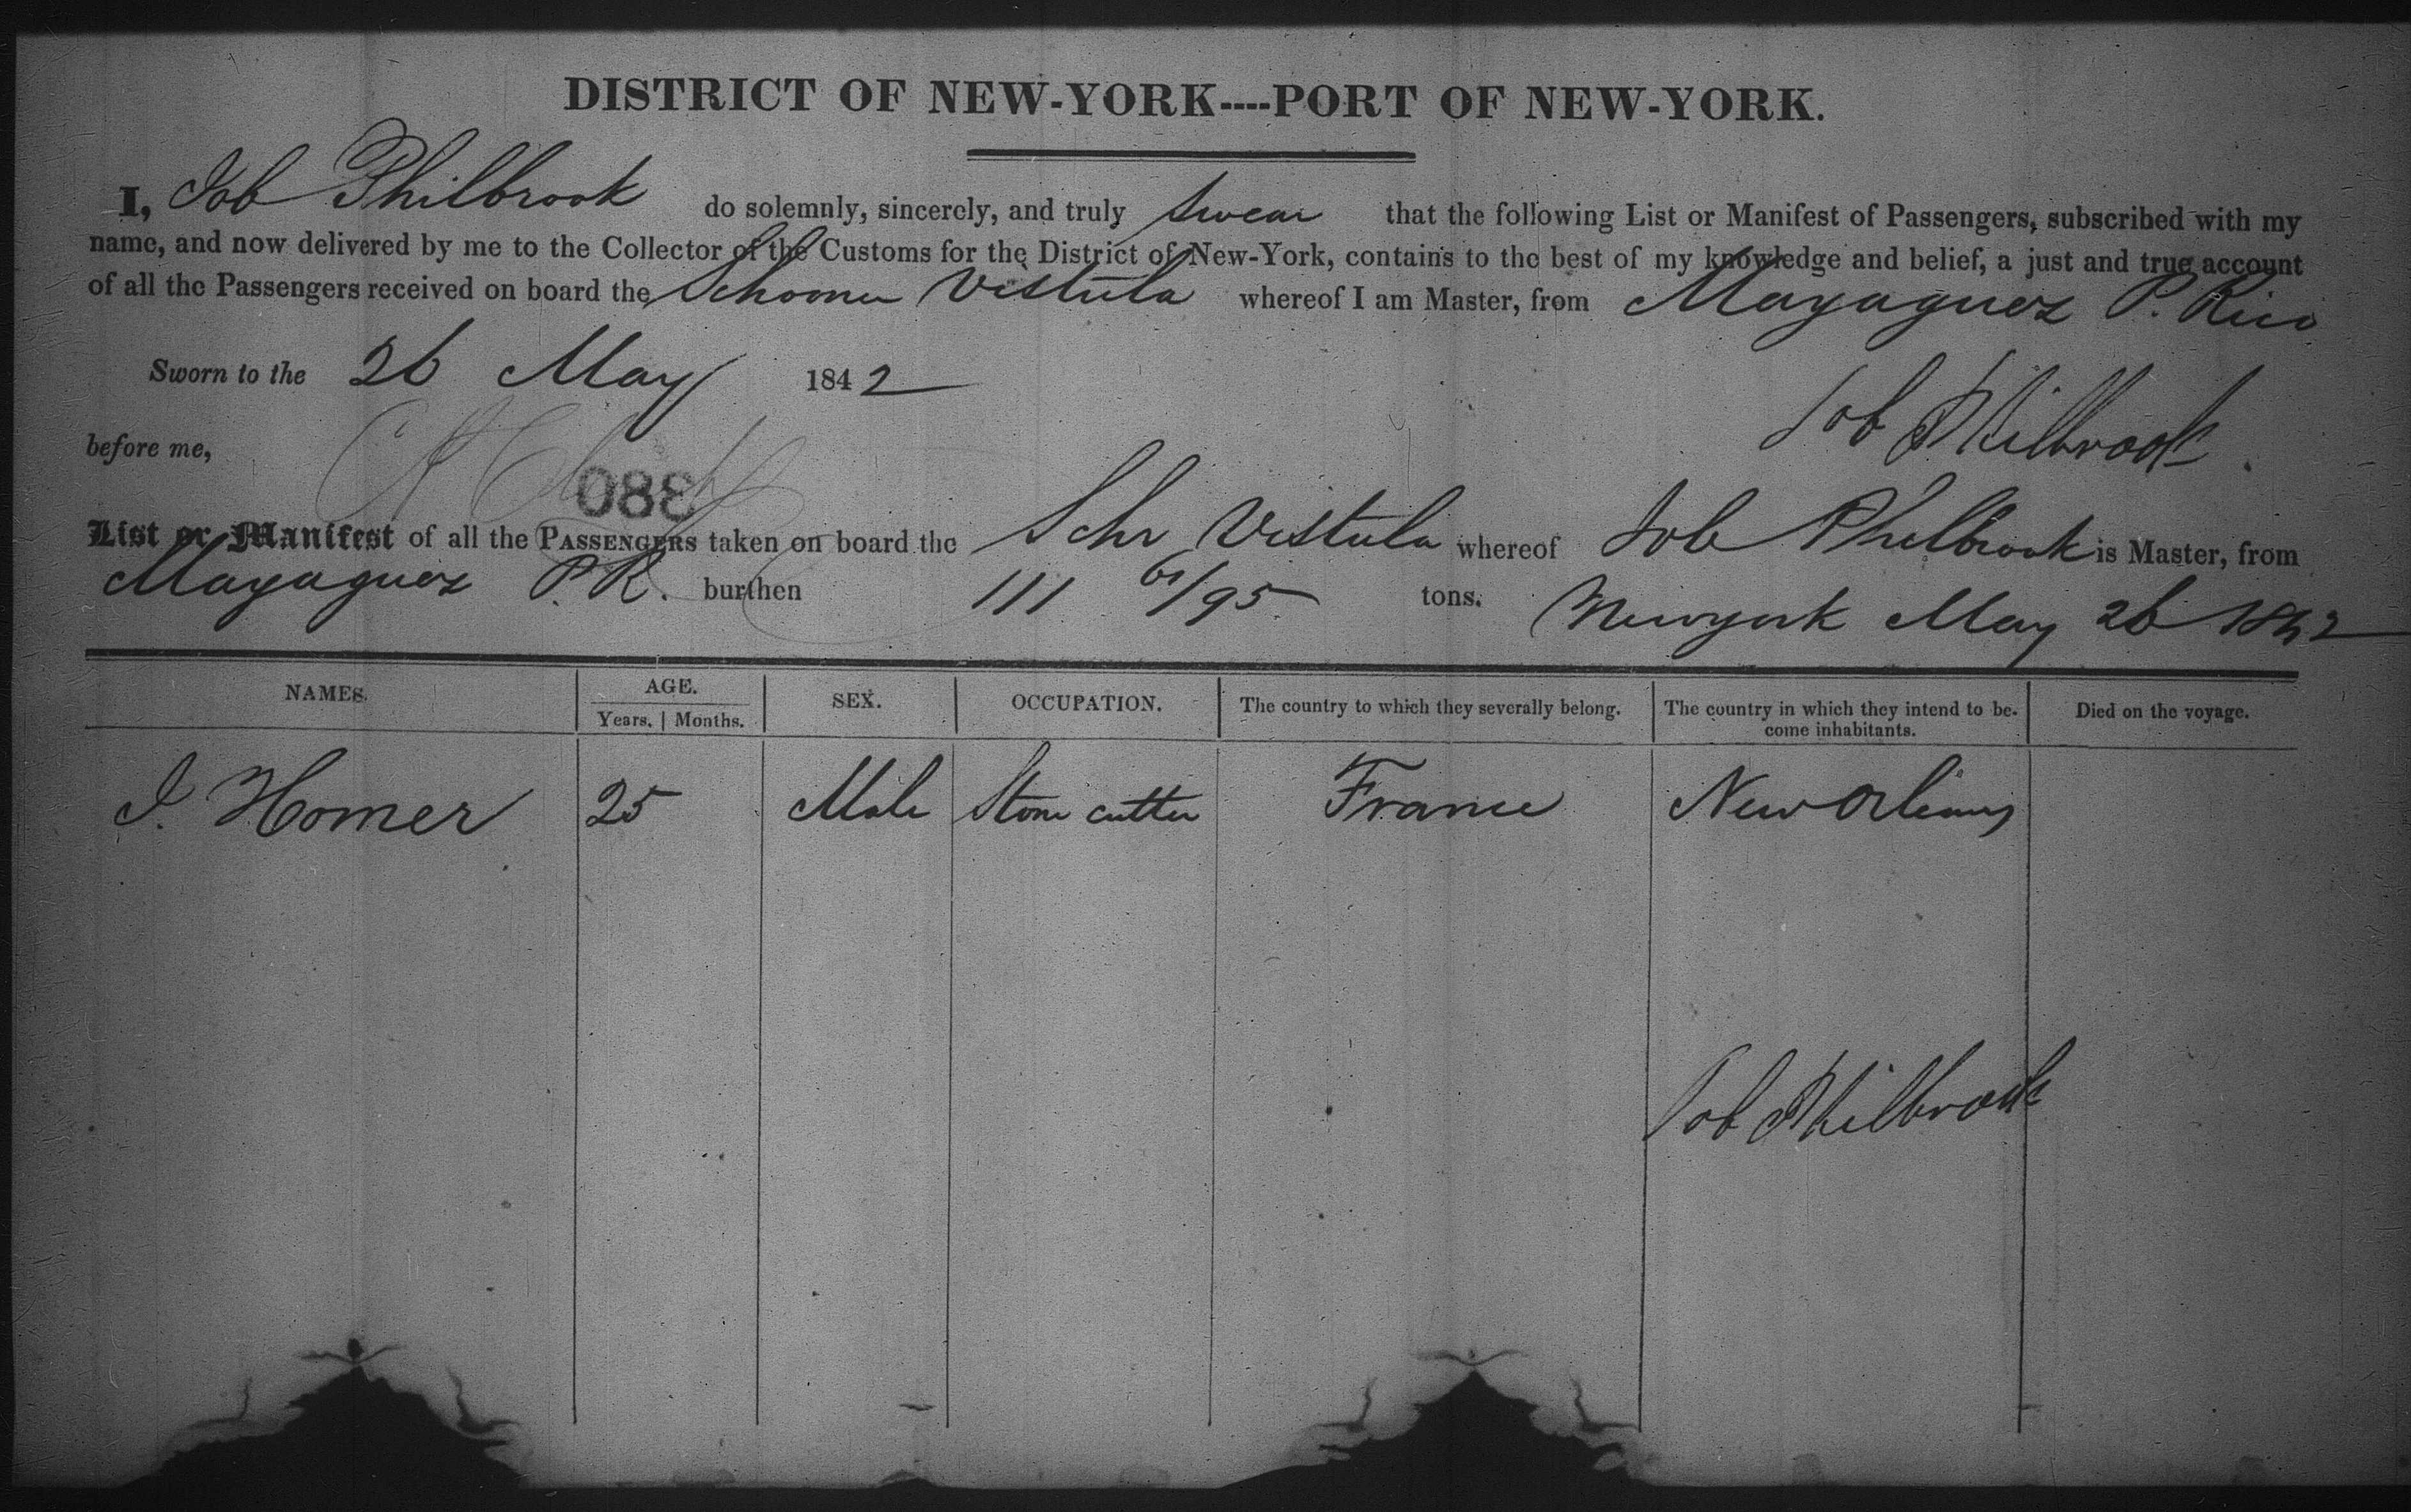 DISTRICT OF NEW-YORK----PORT OF NEW-YORK.
I, Job Philbrook do solemnly, sincerely, and truly swear that the following List or Manifest of Passengers, subscribed with my
name, and now delivered by me to the Collector of the Customs for the District of New-York, contains to the best of my knowledge and belief, a just and true account
of all the Passengers received on board the Schooner Vistula whereof I am Master, from Mayaguez P. Rico
Sworn to the 26 May 1842
Job Philbrook
before me,
380
List or Manifest of all the PASSENGERS taken on board the Schr Vistula whereof Job Philbrook is Master, from
Mayaguez P.R. burthen 111 61/95 tons. Newyork May 26 1842
NAMES. AGE. SEX. OCCUPATION. The country to which they severally belong. The country in which they intend to be-
Years. | Months. come inhabitants. Died on the voyage.
J. Homer 25 Male Stone cutter France New Orleans
Job Philbrook